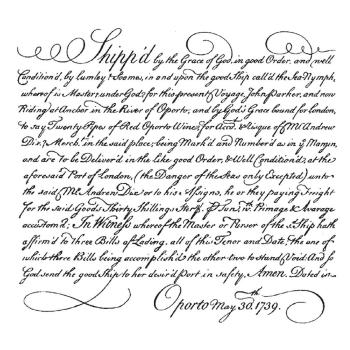 Shipp'd by the Grace of God, in good Order, and well
Condition'd, by Lumley & Soomes, in and upon the good Ship call'd the Sea Nymph,
whereof is Master, under God, for this present Voyage John Parker, and now
Riding at Anchor in the River of Oporto, and by God's Grace bound for London,
to say Twenty Pipes of Red Oporto Wines for Acct. & Risque of Mr. Andrew
Dix, Merch.t in the said place; being Mark'd and Number'd as in ye. Margin,
and are to be Deliver'd in the Like good Order, & Well Condition'd, at the
aforesaid Port of London, (the Danger of the Seas only Excepted) unto
the said Mr. Andrew Dix or to his Assigns, he or they paying Freight
for the said Goods Thirty Shillings Sterg. P. Tun, wth. Primage & Avarage
accustom'd; In Witness whereof the Master or Purser of the sd. Ship hath
affirm'd to Three Bills of Lading, all of this Tenor and Date; the one of
which three Bills being accomplish'd, the other two to stand Void. And so
God send the good Ship to her desir'd Port in safety, Amen. Dated in
Oporto May 3d. 1739.